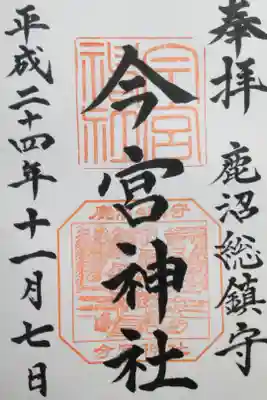 奉拝
鹿沼総鎮守
今宮神社
平成二十四年十一月七日
今宮神社